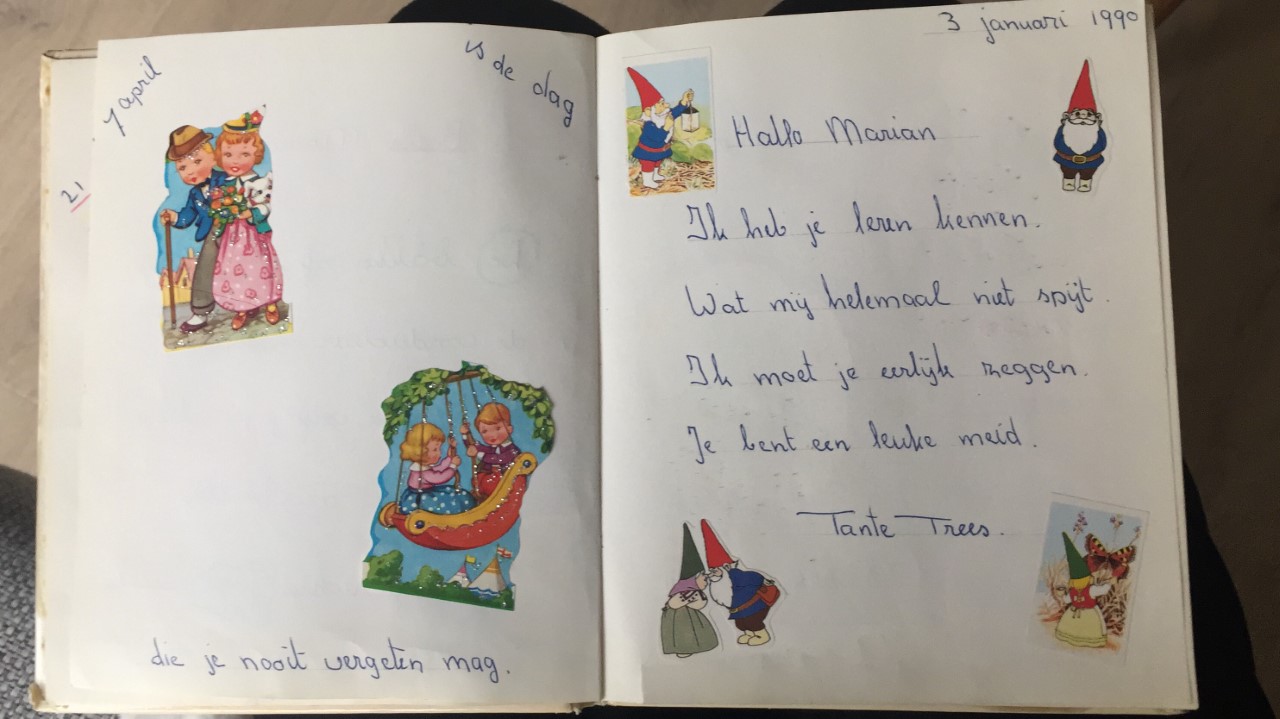 7 april
is de dag
21
die je nooit vergeten mag.
3 januari 1990
Hallo Marian
Ik heb je leren kennen.
Wat mij helemaal niet spijt.
Ik moet je eerlijk zeggen.
Je bent een leuke meid.
Tante Trees.